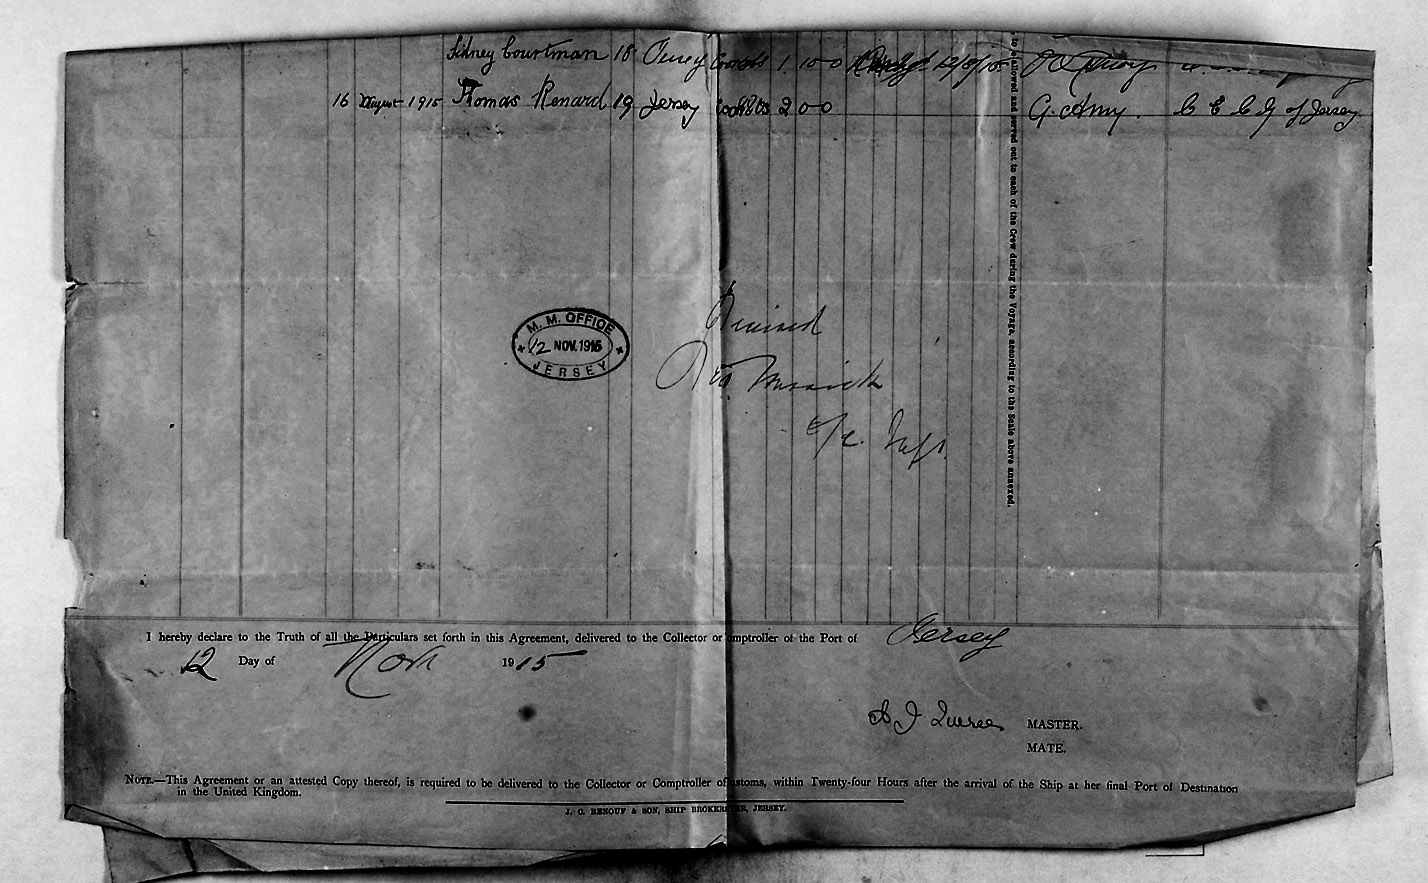 Sidney Courtman 18 Jersey 1 10 0
16 August 1915 Thomas Renard 19 Jersey 2 0 0 G. Amy. of Jersey
to be allowed and served out to each of the Crew during the Voyage, according to the Scale above annexed.
M. M. OFFICE
12 NOV. 1915
JERSEY
I hereby declare to the Truth of all the Particulars set forth in this Agreement, delivered to the Collector or omptroller of the Port of Jersey
12 Day of Novr 1915
MASTER.
MATE.
NOTE.—This Agreement or an attested Copy thereof, is required to be delivered to the Collector or Comptroller of ustoms, within Twenty-four Hours after the arrival of the Ship at her final Port of Destination
in the United Kingdom.
J. C. RENOUF & SON, SHIP BROKERS, JERSEY.